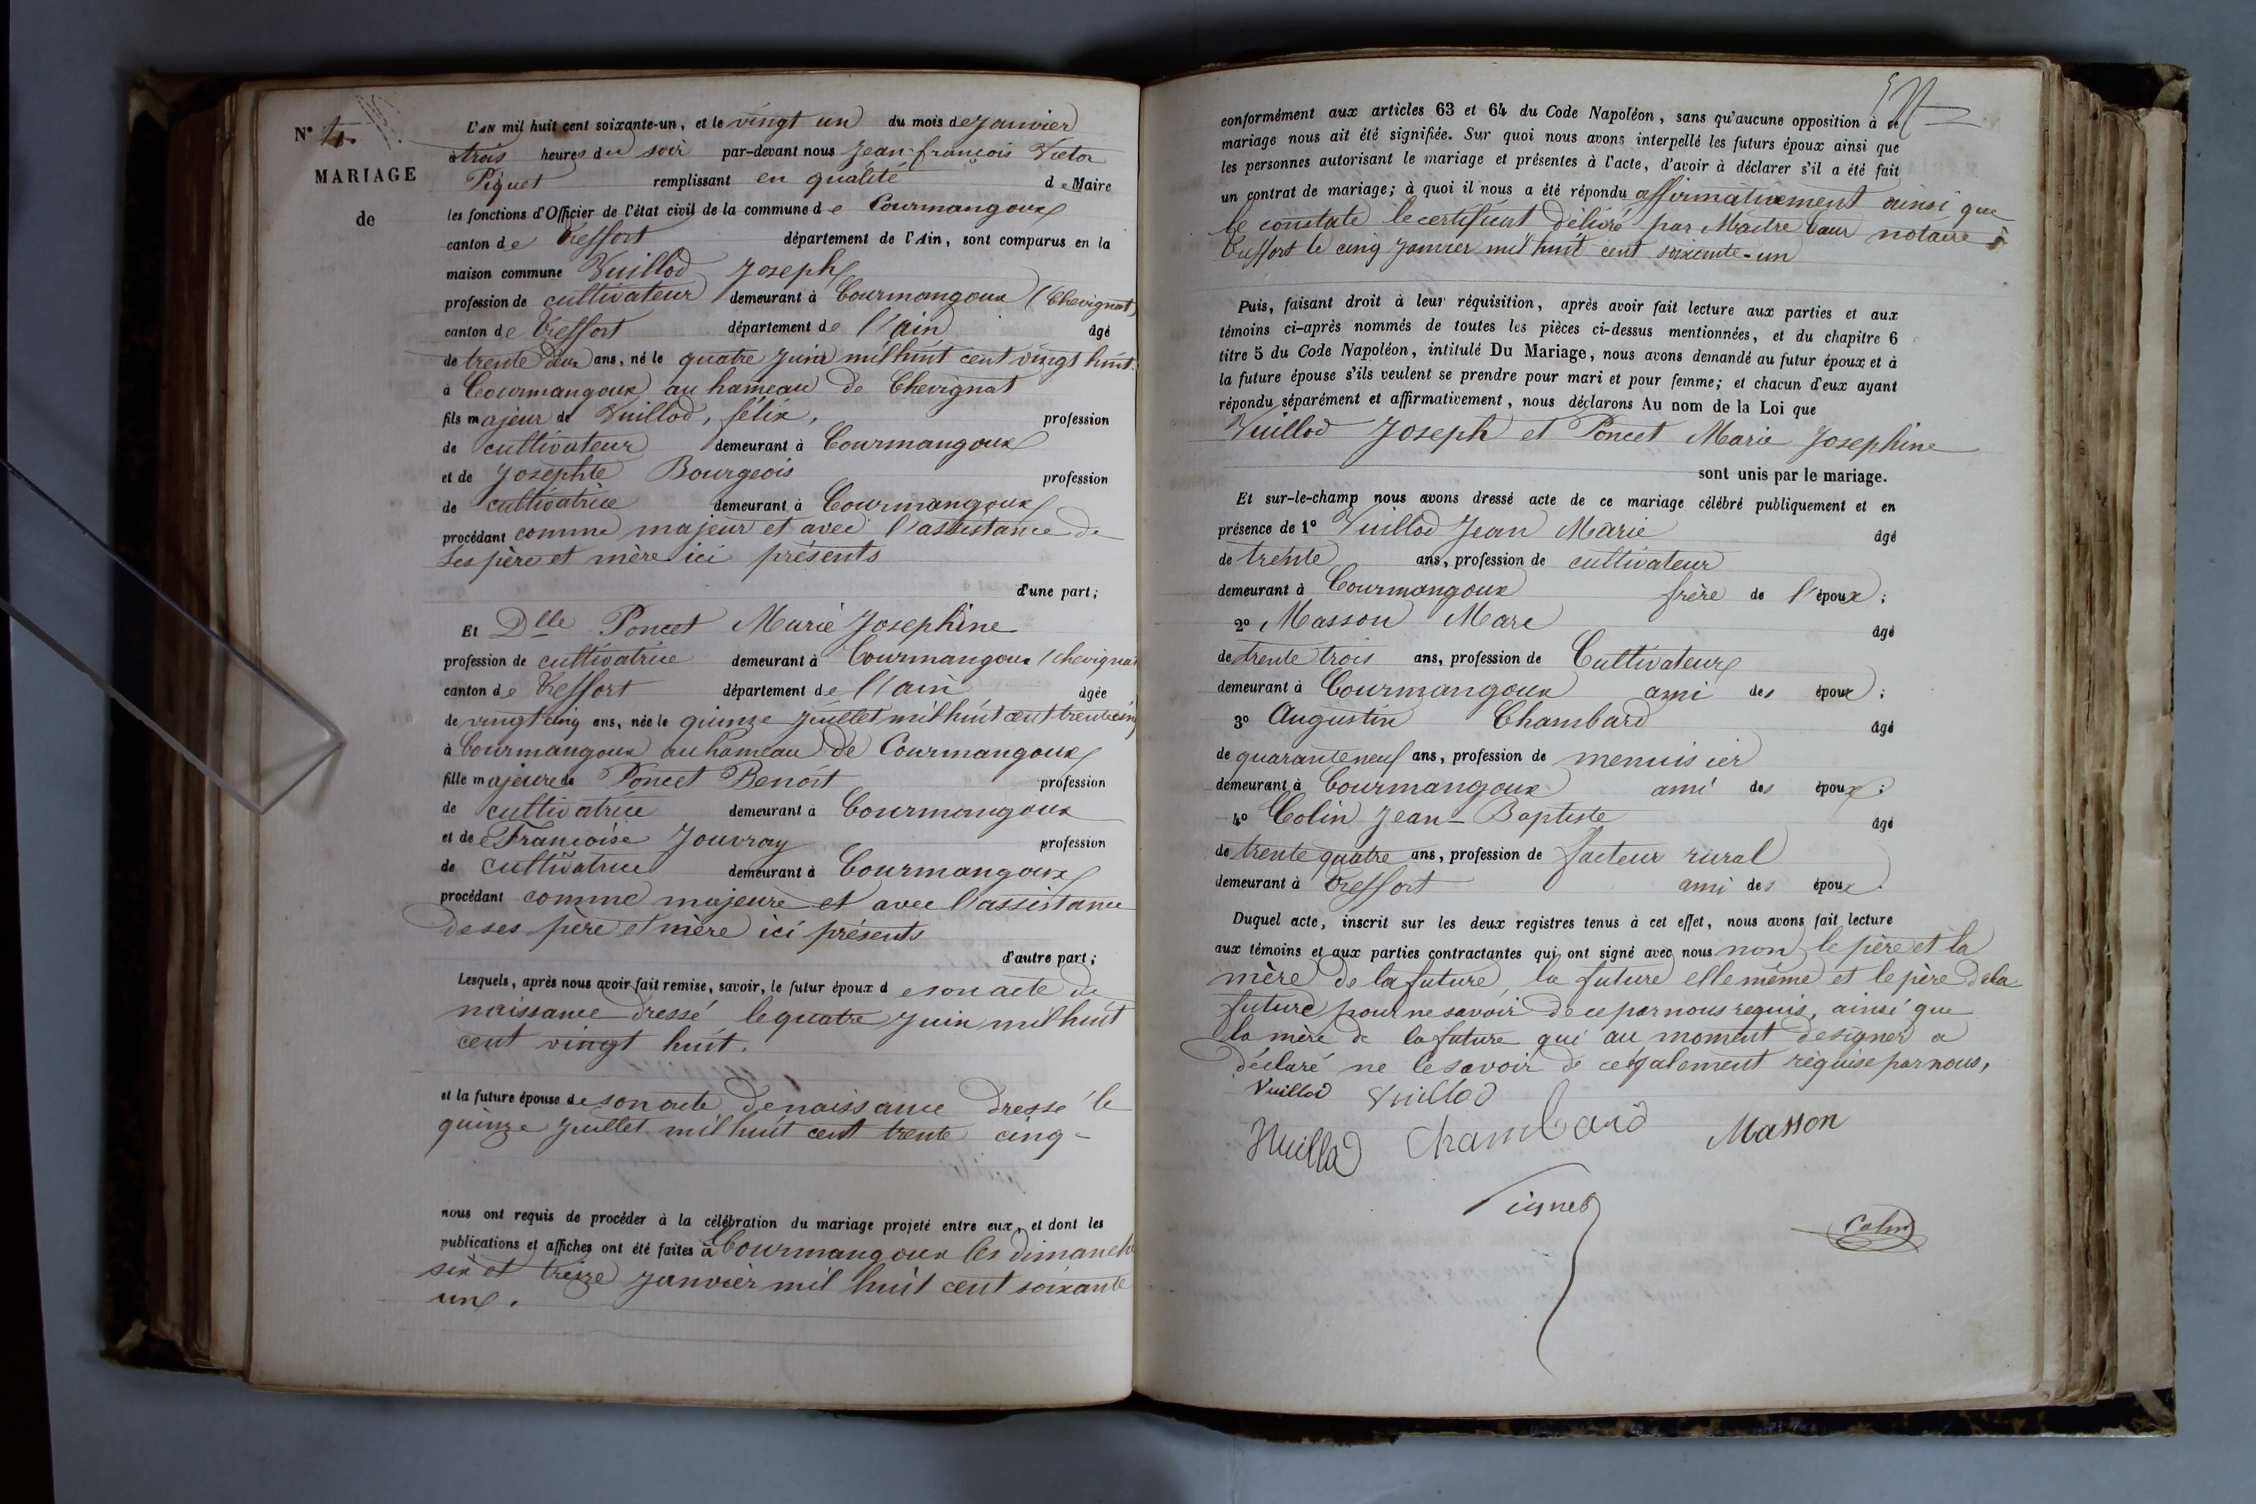 N° 4.
MARIAGE
de
L'AN mil huit cent soixante-un, et le vingt un du mois de janvier
à trois heures du soir par-devant nous Jean-françois Victor
Piquet remplissant en qualité de Maire
les fonctions d'Officier de l'état civil de la commune de Courmangoux
canton de Treffort département de l'Ain, sont comparus en la
maison commune Vuillod Joseph
profession de cultivateur demeurant à Courmangoux (Chevignat)
canton de Treffort département de l'ain âgé
de trente deux ans, né le quatre Juin mil huit cent vingt huit
à Courmangoux au hameau de Chevignat
fils majeur de Vuillod, félix, profession
de cultivateur demeurant à Courmangoux
et de Josephte Bourgeois profession
de cultivatrice demeurant à Courmangoux
procédant comme majeur et avec l'assistance de
ses père et mère ici présents
d'une part;
Et Dlle Poncet Marie Josephine
profession de cultivatrice demeurant à Courmangoux (chevignat
canton de Treffort département de l'ain âgée
de vingt cinq ans, née le quinze Juillet mil huit cent trente cinq
à Courmangoux au hameau de Courmangoux
fille majeure de Poncet Benoit profession
de cultivatrice demeurant à Courmangoux
et de Francoise Jouvray profession
de cultivatrice demeurant à Courmangoux
procédant comme majeure et avec l'assistance
de ses père et mère ici présents
d'autre part;
Lesquels, après nous avoir fait remise, savoir, le futur époux de son acte de
naissance dressé le quatre Juin mil huit
cent vingt huit.
et la future épouse de son acte de naissance dressé le
quinze Juillet mil huit cent trente cinq -
nous ont requis de procéder à la célébration du mariage projeté entre eux, et dont les
publications et affiches ont été faites à Courmangoux les dimanche
six et treize janvier mil huit cent soixante
un.
conformément aux articles 63 et 64 du Code Napoléon, sans qu'aucune opposition à ce
mariage nous ait été signifiée. Sur quoi nous avons interpellé les futurs époux ainsi que
les personnes autorisant le mariage et présentes à l'acte, d'avoir à déclarer s'il a été fait
un contrat de mariage; à quoi il nous a été répondu affirmativement ainsi que
le constate le certificat délivré par Maitre notaire à
Treffort le cinq Janvier mil huit cent soixante-un
Puis, faisant droit à leur réquisition, après avoir fait lecture aux parties et aux
témoins ci-après nommés de toutes les pièces ci-dessus mentionnées, et du chapitre 6
titre 5 du Code Napoléon, intitulé Du Mariage, nous avons demandé au futur époux et à
la future épouse s'ils veulent se prendre pour mari et pour femme; et chacun d'eux ayant
répondu séparément et affirmativement, nous déclarons Au nom de la Loi que
Vuillod Joseph et Poncet Marie Josephine
sont unis par le mariage.
Et sur-le-champ nous avons dressé acte de ce mariage célébré publiquement et en
présence de 1° Vuillod Jean Marie âgé
de trente ans, profession de cultivateur
demeurant à Courmangoux frère de l'époux;
2° Masson Marc âgé
de trente trois ans, profession de Cultivateur
demeurant à Courmangoux ami des époux;
3° Augustin Chambard âgé
de quarante neuf ans, profession de menuisier
demeurant à Courmangoux ami des époux;
4° Colin Jean-Baptiste âgé
de trente quatre ans, profession de facteur rural
demeurant à Treffort ami des époux.
Duquel acte, inscrit sur les deux registres tenus à cet effet, nous avons fait lecture
aux témoins et aux parties contractantes qui ont signé avec nous non le père et la
mère de la future, la future elle même et le père de la
future pour ne savoir de ce par nous requis, ainsi que
la mère de la future qui au moment de signer a
déclaré ne le savoir de ce également requise par nous,
Vuillod Vuillod
Vuillod Chambard Masson
Piquet
Colin